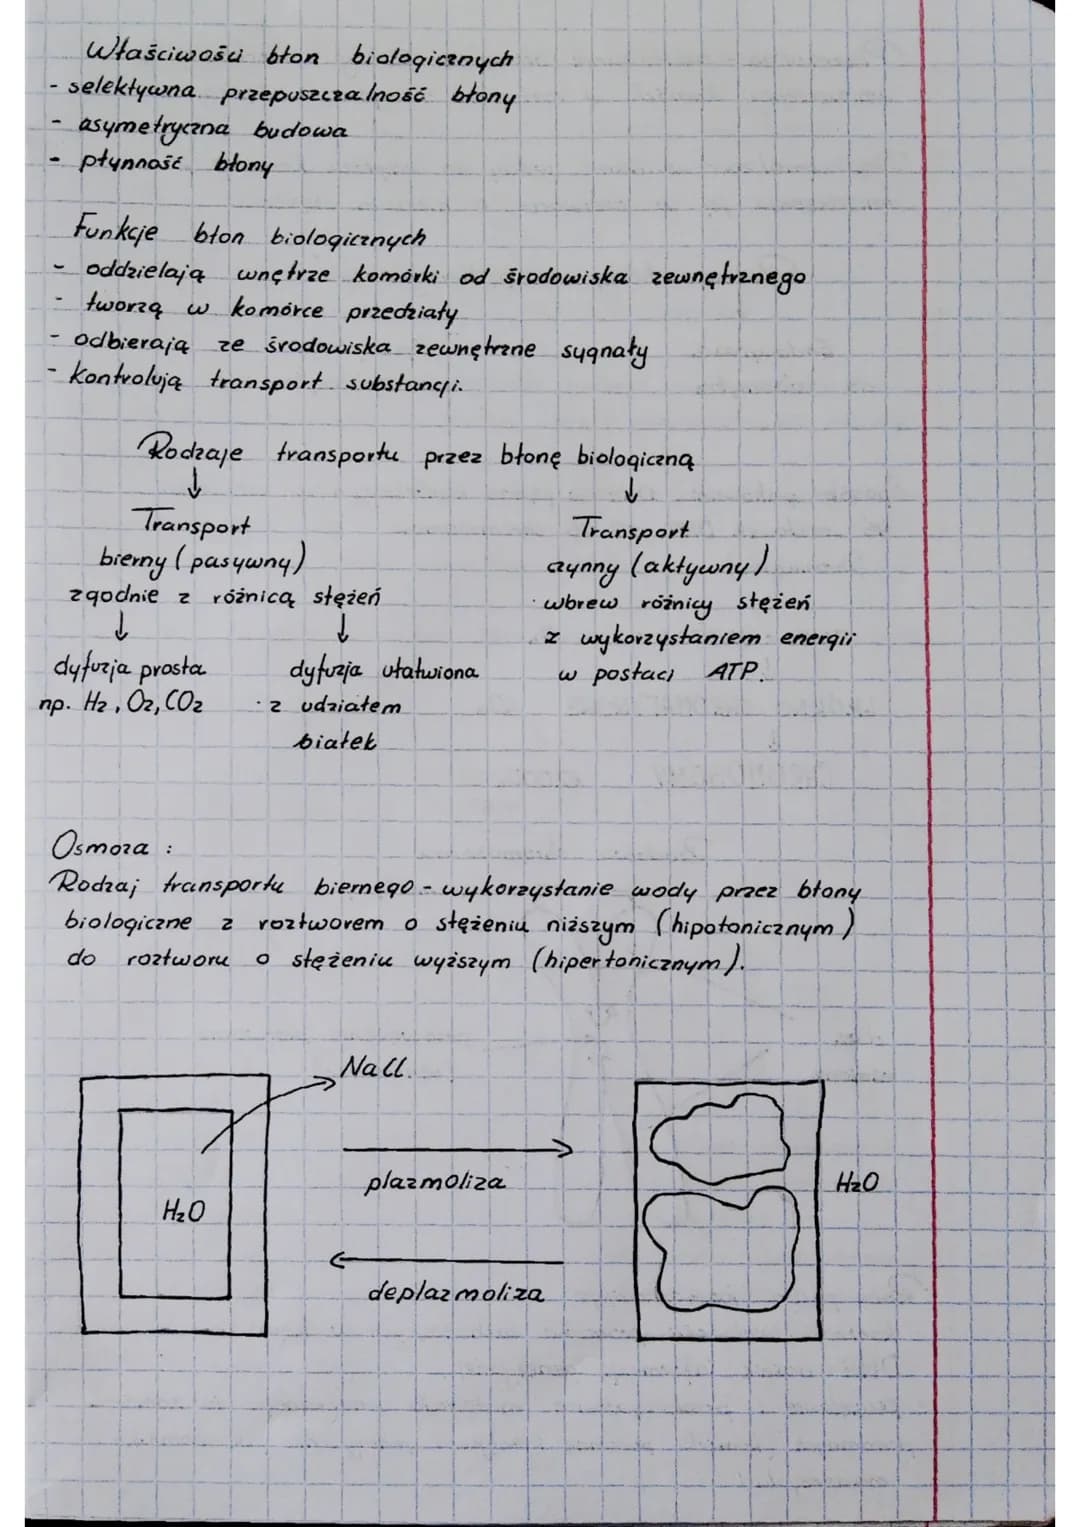 Właściwości błon biologicznych
- selektywna przepuszczalność błony
- asymetryczna budowa
- płynność błony
Funkcje błon biologicznych
- oddzielają wnętrze komórki od środowiska zewnętrznego
- tworzą w komórce przedziały
- odbierają ze środowiska zewnętrzne sygnały
- kontrolują transport substancji.
Rodzaje transportu przez błonę biologiczną
↓ ↓
Transport
bierny (pasywny)
zgodnie z różnicą stężeń
↓ ↓
dyfuzja prosta
np. H2, O2, CO2
dyfuzja ułatwiona
· z udziałem
białek
Transport
czynny (aktywny)
· wbrew różnicy stężeń
z wykorzystaniem energii
w postaci ATP.
Osmoza :
Rodzaj transportu biernego - wykorzystanie wody przez błony
biologiczne z roztworem o stężeniu niższym (hipotonicznym)
do roztworu o stężeniu wyższym (hipertonicznym).
NaCl.
H2O
plazmoliza
deplazmoliza
H2O